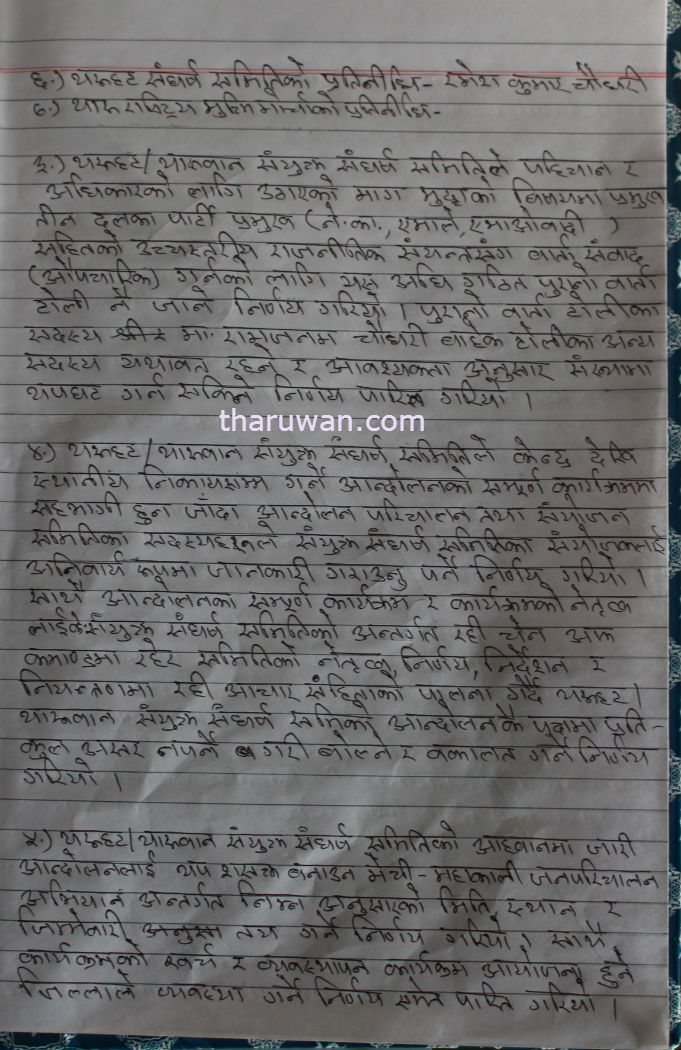 ६.) थरुहट संघर्ष समितिको प्रतिनीधि- रमेश कुमार चौधरी
७.) थारु राष्ट्रिय मुक्ति मोर्चाको प्रतिनीधि-
३.) थरुहट/थारुवान संयुक्त संघर्ष समितिले पहिचान र
अधिकारको लागि उठाएको माग मुद्दाको विषयमा प्रमुख
तीन दलका पार्टी प्रमुख (ने.का., एमाले, एमाओवादी )
सहितको उच्चस्तरीय राजनीतिक संयन्त्रसंग वार्ता संवाद
(औपचारिक) गर्नको लागि यस अघि गठित पुरानो वार्ता
टोली नै जाने निर्णय गरियो । पुरानो वार्ता टोलीका
सदस्य श्री मा. रामजनम चौधरी बाहेक टोलीका अन्य
सदस्य यथावत रहने र आवश्यकता अनुसार संख्यामा
थपघट गर्न सकिने निर्णय पारित गरियो ।
tharuwan.com
४.) थरुहट/थारुवान संयुक्त संघर्ष समितिले केन्द्र देखि
स्थानीय निकायसम्म गर्ने आन्दोलनको सम्पूर्ण कार्यक्रममा
सहभागी हुन जाँदा आन्दोलन परिचालन तथा संयोजन
समितिका सदस्यहरुले संयुक्त संघर्ष समितिका संयोजकलाई
अनिवार्य रुपमा जानकारी गराउनु पर्ने निर्णय गरियो ।
साथै आन्दोलनका सम्पूर्ण कार्यक्रम र कार्यक्रमको नेतृत्व
संयुक्त संघर्ष समितिको अन्तर्गत रही चेन अफ
कमाण्डमा रहेर समितिको नेतृत्व, निर्णय, निर्देशन र
नियन्त्रणमा रही आचार संहिताको पालना गर्दै थरुहट/
थारुवान संयुक्त संघर्ष समितिको आन्दोलनकै पक्षमा प्रति-
कुल असर नपर्ने गरी बोल्ने र वकालत गर्ने निर्णय
गरियो ।
५.) थरुहट/थारुवान संयुक्त संघर्ष समितिको आह्वानमा जारी
आन्दोलनलाई थप शसक्त बनाउन मेची-महाकाली जनपरिचालन
अभियान अन्तर्गत निम्न अनुसारको मिति, स्थान र
जिम्मेवारी अनुसार तय गर्ने निर्णय गरियो । साथै
कार्यक्रमको खर्च र व्यवस्थापन कार्यक्रम आयोजना हुने
जिल्लाले व्यवस्था गर्ने निर्णय समेत पारित गरियो ।